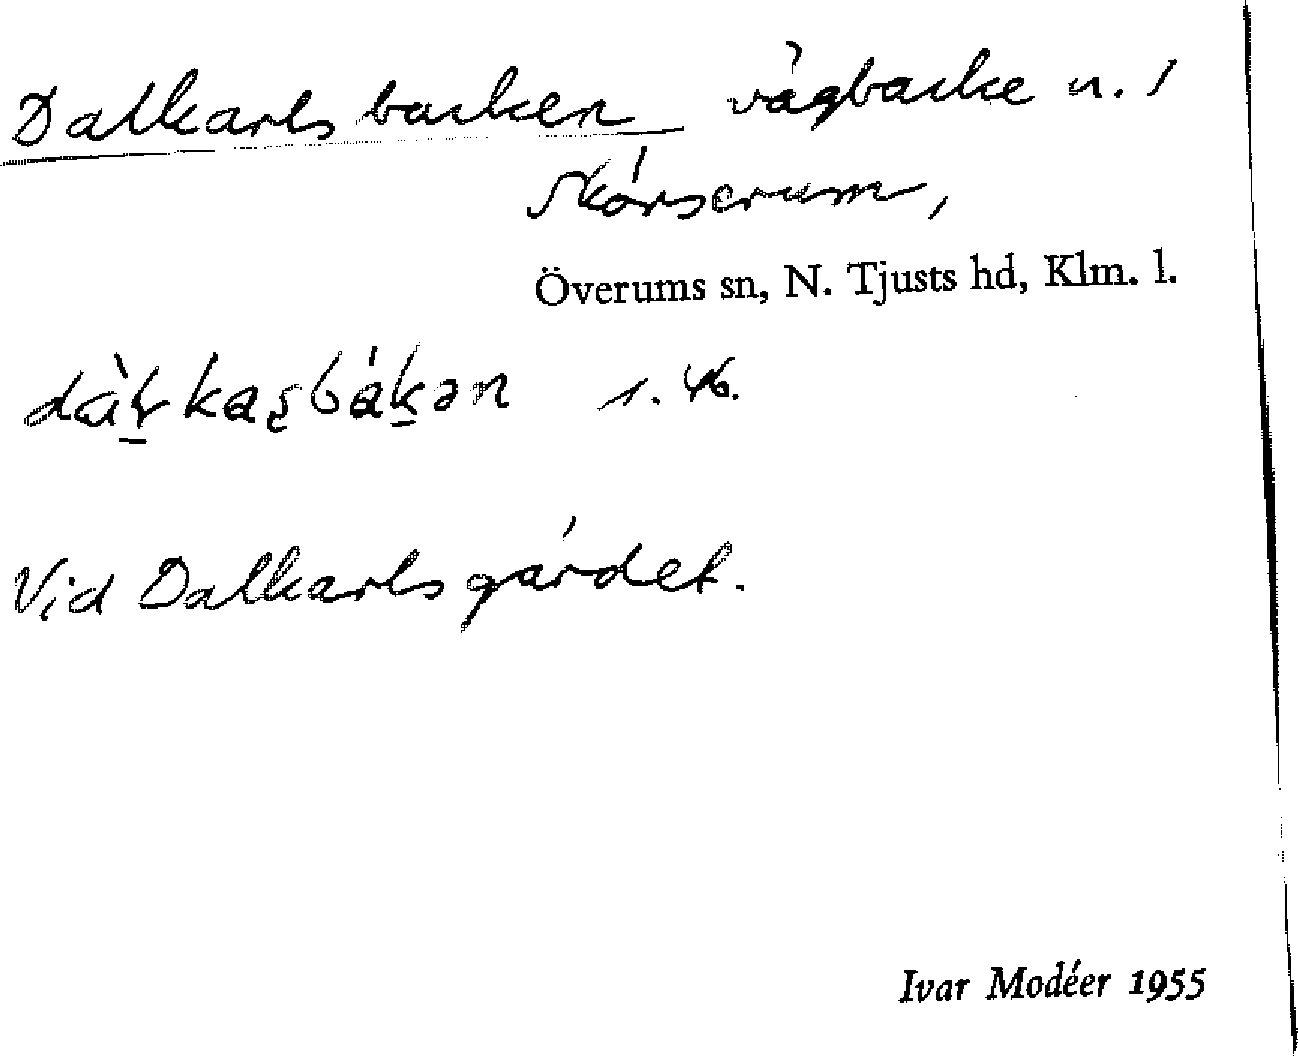 Dalkarlsbacken vägbacke u. 1
Skörserum,
Överums sn, N. Tjusts hd, Klm. l.
s. 46.
Vid Dalkarlsgärdet.
Ivar Modéer 1955